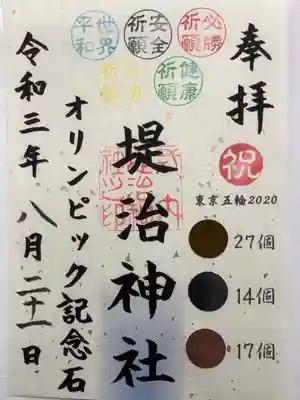 奉拝
祝
東京五輪2020
27個
14個
17個
必勝祈願
安全祈願
世界平和
健康祈願
堤治神社
オリンピック記念石
令和三年 八月二十一日